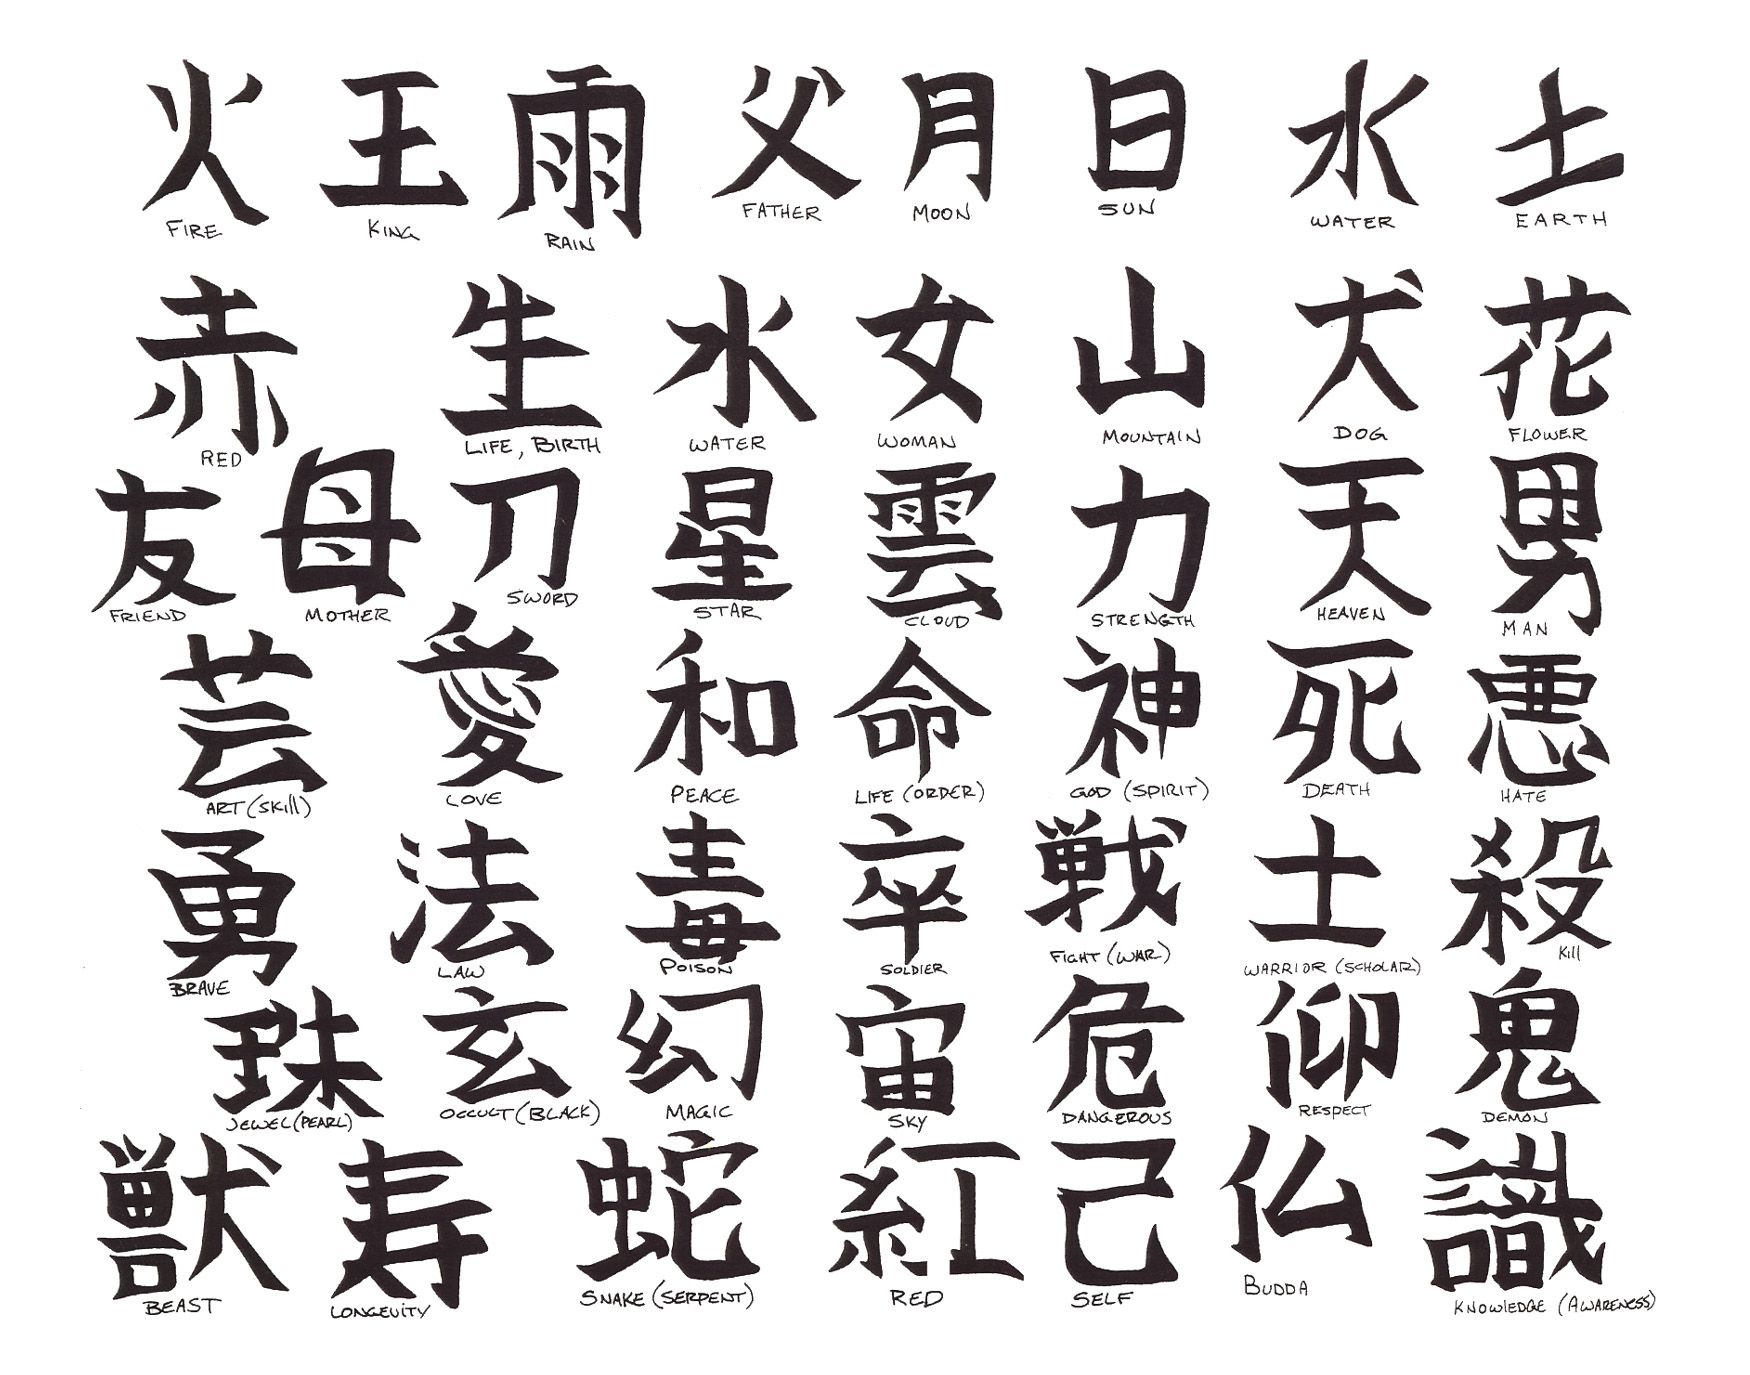 火 王 雨 父 月 日 水 土
FIRE KING RAIN FATHER MOON SUN WATER EARTH
赤 生 水 女 山 犬 花
RED LIFE, BIRTH WATER WOMAN MOUNTAIN DOG FLOWER
友 母 刀 星 雲 力 天 男
FRIEND MOTHER SWORD STAR CLOUD STRENGTH HEAVEN MAN
芸 愛 和 命 神 死 悪
ART (SKill) LOVE PEACE LIFE (ORDER) GOD (SPIRIT) DEATH HATE
勇 法 毒 卒 戦 士 殺
BRAVE LAW POISON SOLDIER FIGHT (WAR) WARRIOR (SCHOLAR) Kill
珠 玄 幻 宙 危 仰 鬼
JEWEL (PEARL) OCCULT (BLACK) MAGIC SKY DANGEROUS RESPECT DEMON
獣 寿 蛇 紅 己 仏 識
BEAST LONGEVITY SNAKE (SERPENT) RED SELF BUDDA KNOWLEDGE (AWARENESS)